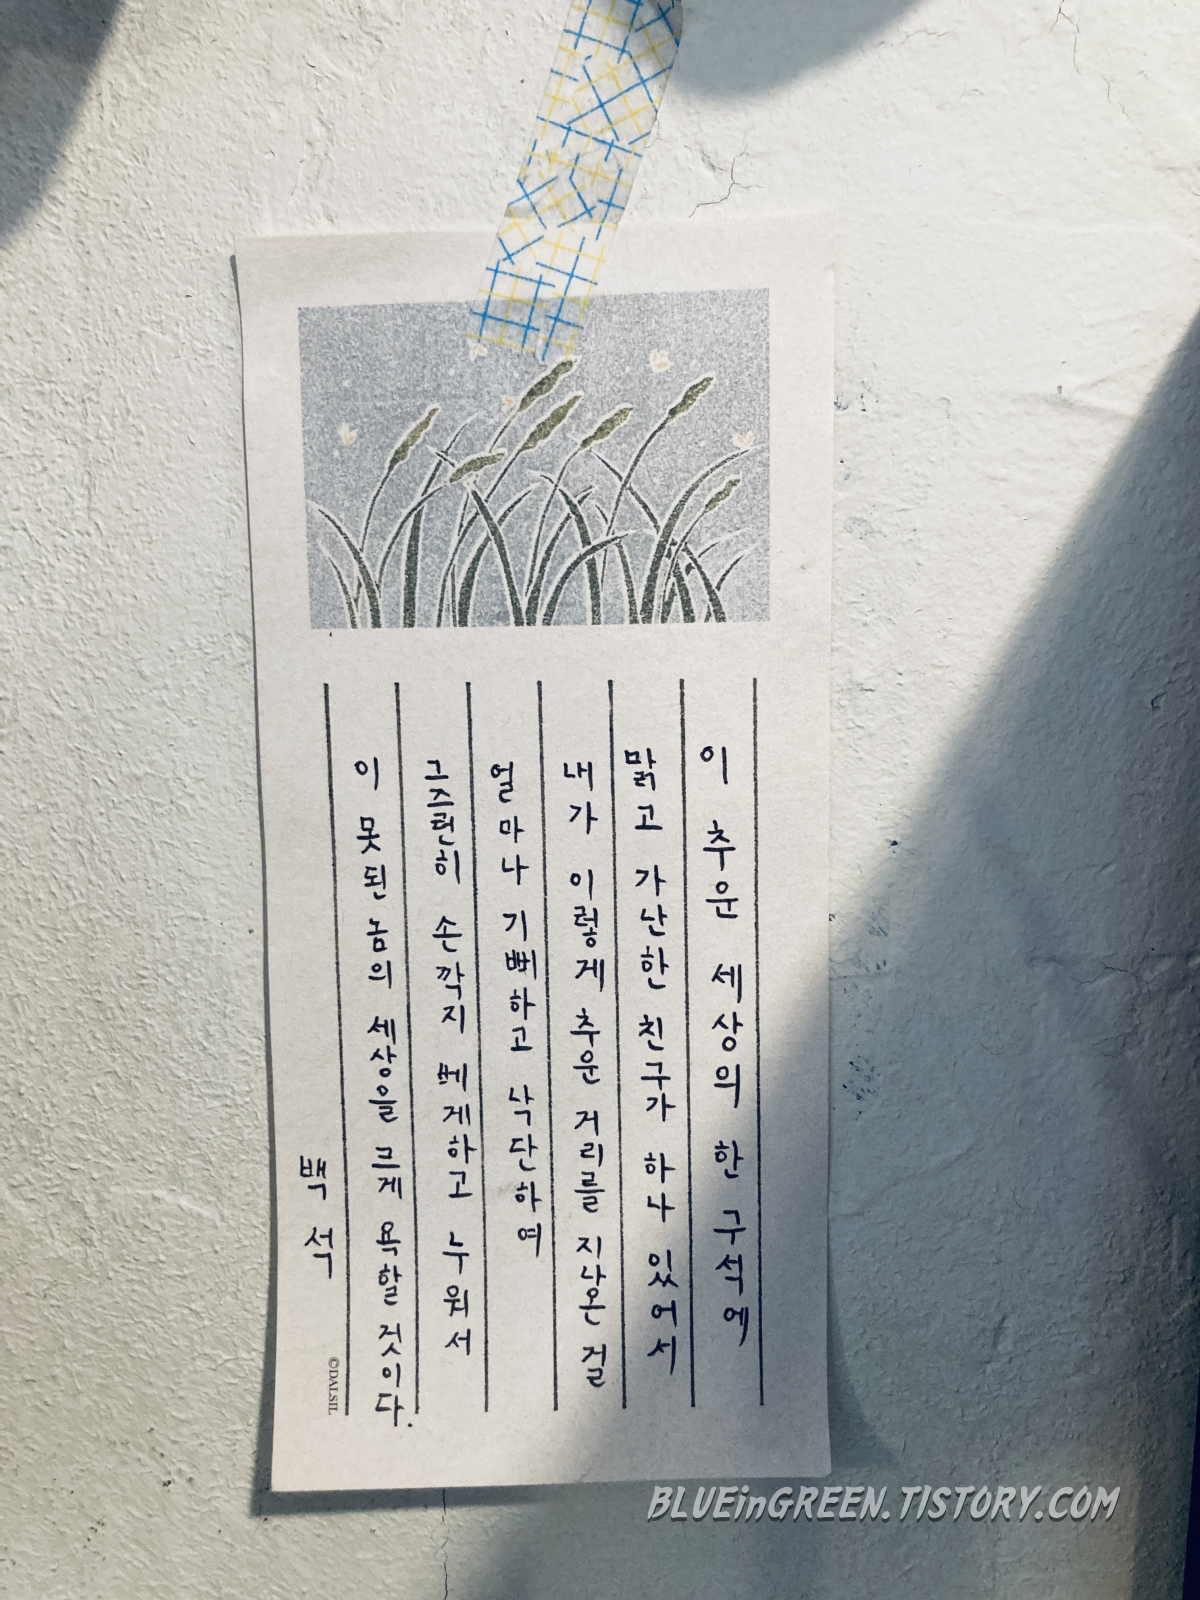 이 추운 세상의 한 구석에
맑고 가난한 친구가 하나 있어서
내가 이렇게 추운 거리를 지나온 걸
얼마나 기뻐하고 낙단하여
그즈런히 손깍지 베게하고 누워서
이 못된 놈의 세상을 크게 욕할 것이다.
백석
©DALSIL
BLUEinGREEN.TISTORY.COM